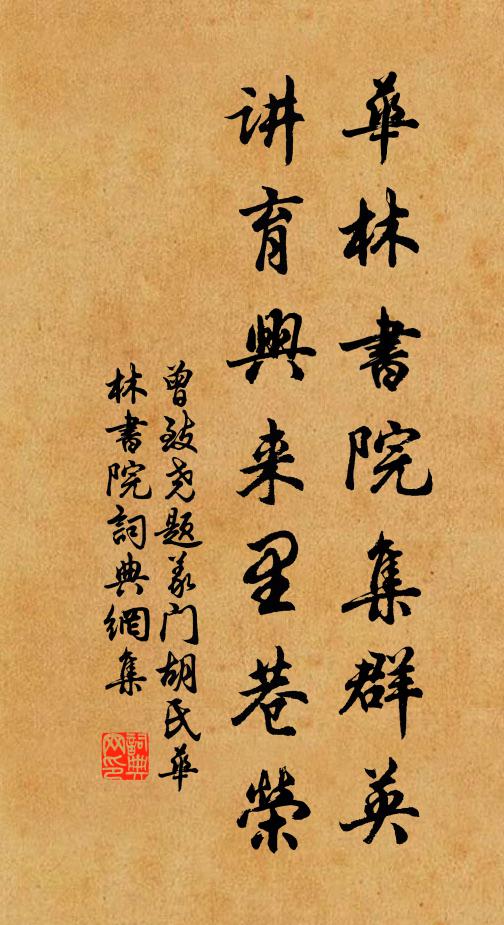 華林書院集群英
讲育興来里巷榮
曾致尧题义门胡氏華
林書院詞典網集
詞典网印